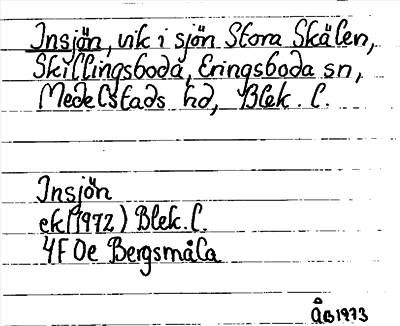 Insjön, vik i sjön Stora Skälen,
Skillingsboda, Eringsboda sn,
Medelstads hd, Blek. l.
Insjön
ek (1972) Blek. l.
4F 0e Bergsmåla
ÅB 1973